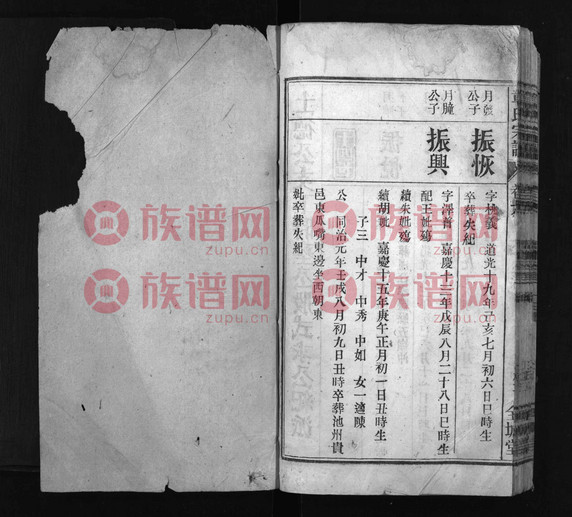 月
公子
振恢
字桂義 道光十九年己亥七月初六日巳時生
卒葬失紀
月朣
公子
振興
字澤普 嘉慶十三年戊辰八月二十八日巳時生
配王妣
續朱妣
續胡妣 嘉慶十五年庚午正月初一日丑時生
子三 中才 中秀 中如 女一適陳
公 同治元年壬戌八月初九日丑時卒葬池州貴
邑東瓜嘴東邊坐西朝東
妣卒葬失紀
氏宗譜
卷
全城堂
族谱网
zupu.cn
族谱网
zupu.cn
族谱网
zupu.cn
族谱网
zupu.cn